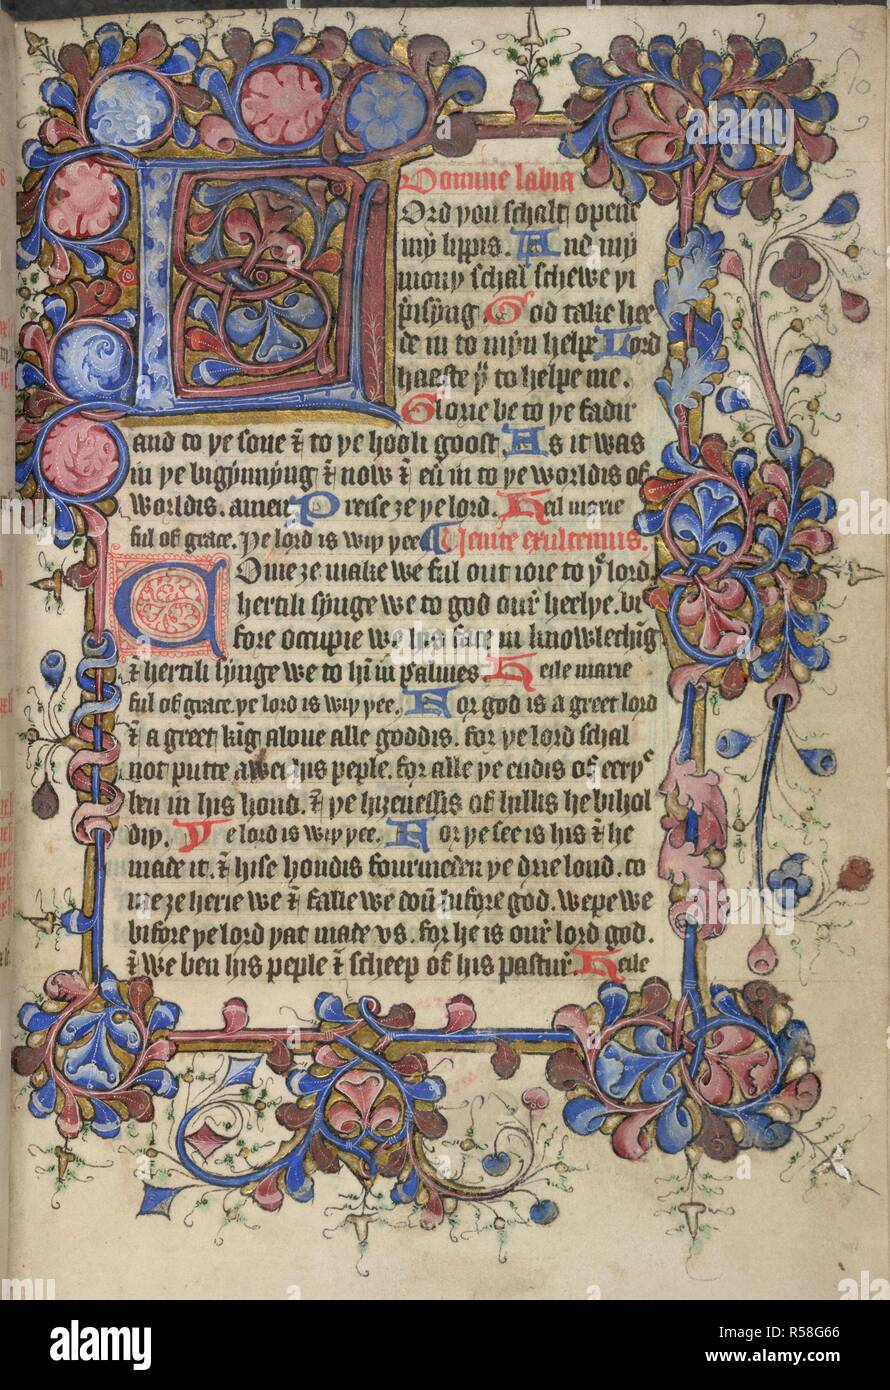 Domine labia
Lord you schalt opene
my lippis. And my
mouþ schal schewe þi
p̄isyng. God take hee
de in to myn helpe Lord
haaste þͧ to helpe me.
Glorie be to þe fadir
and to þe sone ⁊ to þe hooli goost. As it was
in þe bigynnyng ⁊ now ⁊ eū in to þe worldis of
worldis. amen. Preise ȝe þe lord. Heil marie
ful of grace. þe lord is wiþ þee Uenite exultemus.
Come ȝe make we ful out ioie to þͤ lord
hertili synge we to god our̄ heelþe. bi
fore occupie we his face in knowlechīg
⁊ hertili synge we to hī in psalmes Heile marie
ful of grace. þe lord is wiþ þee. For god is a greet lord
⁊ a greet kīg aboue alle goddis. for þe lord schal
not putte awei his peple. for alle þe endis of erþͤ
ben in his hond. ⁊ þe hiȝenessis of hillis he bihol
diþ. Þe lord is wiþ þee. For þe see is his ⁊ he
made it. ⁊ hise hondis fourmeden þe drie lond. co
me ȝe herie we ⁊ falle we doū bifore god. wepe we
bifore þe lord þat made us. for he is our̄ lord god.
⁊ we ben his peple ⁊ scheep of his pastur̄. Heile
10
alamy
alamy
Image ID: R58G66
www.alamy.com